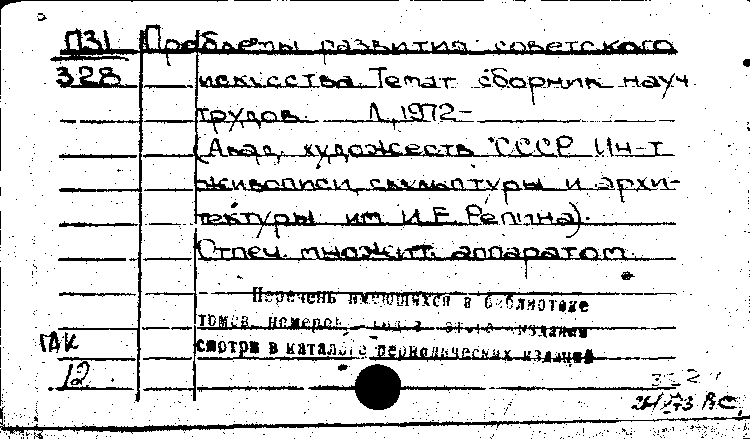 П31 Проблемы развития советского
328 искусства. Темат. сборник науч.
трудов. Л., 1972-
(Акад. художеств СССР. Ин-т
живописи, скульптуры и архи-
тектуры им. И.Е. Репина).
Отпеч. множит. аппаратом.
Перечень имеющихся в библиотеке
томов, номеров, издания
смотри в каталоге периодических изданий
ГАК
12